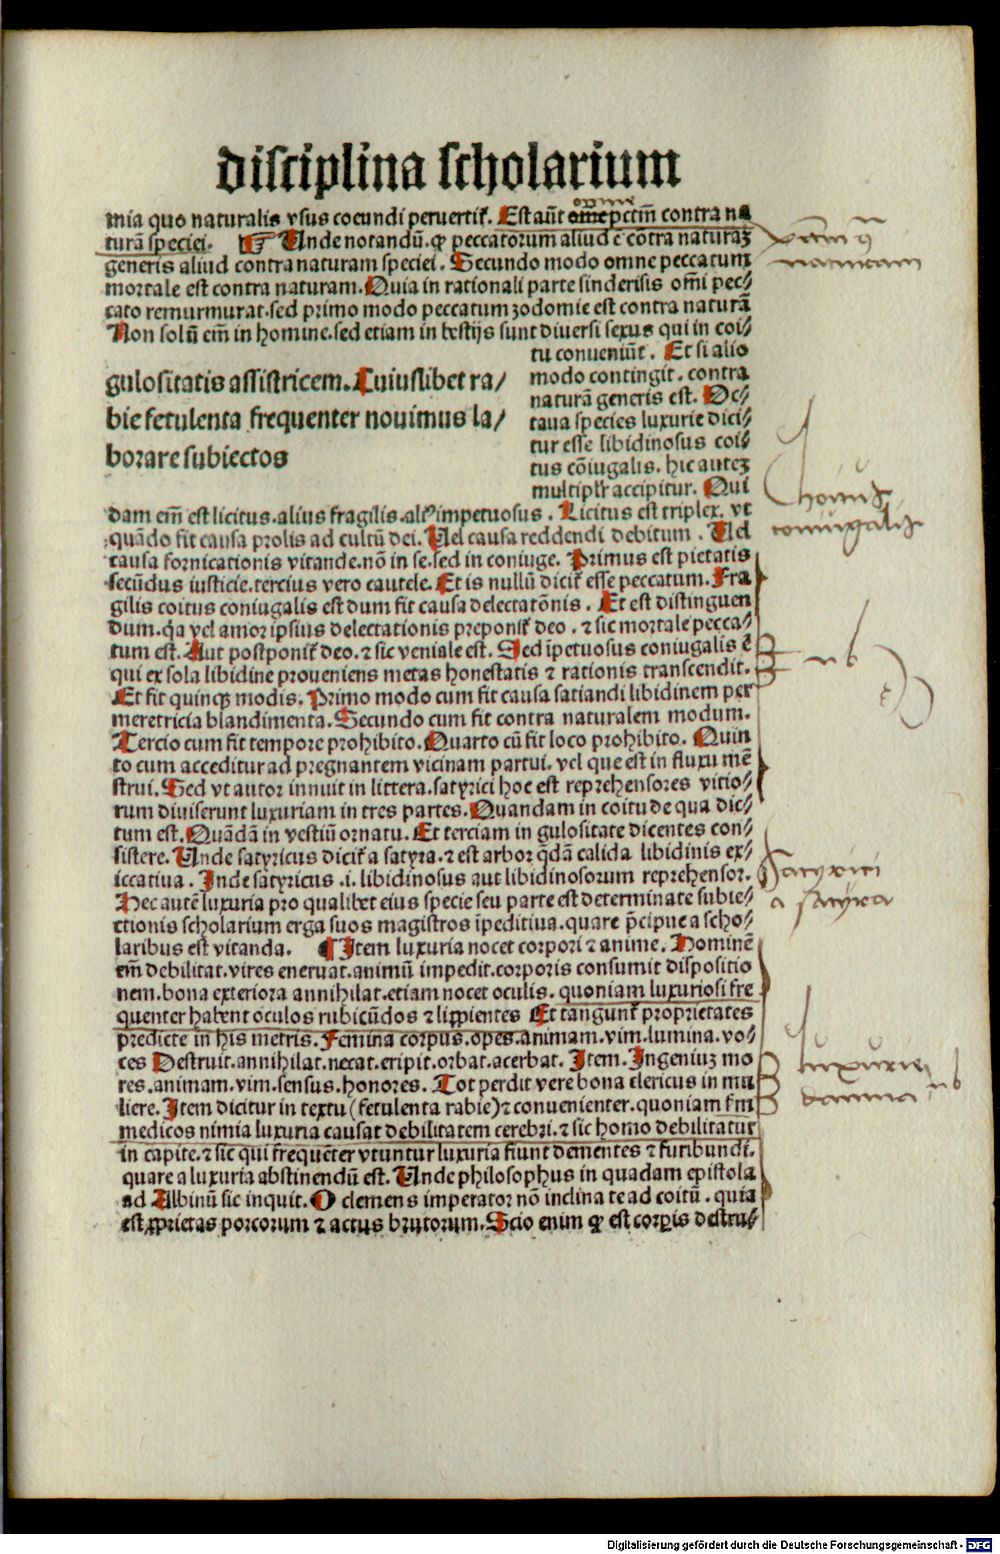 disciplina scholarium
mia quo naturalis vsus coeundi peruertit̃. Est aũt om̃e pctm̃ contra na
turã speciei. ☞ Unde notandũ. ꝙ peccatorum aliud ē cõtra naturaꝫ
generis aliud contra naturam speciei. Secundo modo omne peccatum
mortale est contra naturam. Quia in rationali parte sinderisis om̃i pec⸗
cato remurmurat. sed primo modo peccatum zodomie est contra naturã
Non solũ em̃ in homine. sed etiam in bestijs sunt diuersi sexus qui in coi⸗
tu conueniũt. Et si alio
modo contingit. contra
naturã generis est. Oc⸗
taua species luxurie dici⸗
tur esse libidinosus coi⸗
tus cõiugalis. hic auteꝫ
multipl'r accipitur. Qui
gulositatis assistricem. Cuiuslibet ra/
bie fetulenta frequenter nouimus la/
borare subiectos
dam em̃ est licitus. alius fragilis. aliꝰ impetuosus. Licitus est triplex. vt
quãdo fit causa prolis ad cultũ dei. Uel causa reddendi debitum. Uel
causa fornicationis vitande. nõ in se. sed in coniuge. Primus est pietatis
secũdus iusticie. tercius vero cautele. Et is nullũ dicit̃ esse peccatum. Fra
gilis coitus coniugalis est dum fit causa delectatõnis. Et est distinguen
dum. q̃a vel amor ipsius delectationis preponit̃ deo. ⁊ sic mortale pecca⸗
tum est. Aut postponit̃ deo. ⁊ sic veniale est. Sed ĩpetuosus coniugalis ē
qui ex sola libidine proueniens metas honestatis ⁊ rationis transcendit.
Et fit quinqꝫ modis. Primo modo cum fit causa satiandi libidinem per
meretricia blandimenta. Secundo cum fit contra naturalem modum.
Tercio cum fit tempore prohibito. Quarto cũ fit loco prohibito. Quin
to cum acceditur ad pregnantem vicinam partui. vel que est in fluxu mē
strui. Sed vt autor innuit in littera. satyrici hoc est reprehensores vitio⸗
rum diuiserunt luxuriam in tres partes. Quandam in coitu de qua dic⸗
tum est. Quãdã in vestiũ ornatu. Et terciam in gulositate dicentes con⸗
sistere. Unde satyricus dicit̃ a satyra. ⁊ est arbor q̃dã calida libidinis ex⸗
iccatiua. Inde satyricus .i. libidinosus aut libidinosorum reprehensor.
Hec autē luxuria pro qualibet eius specie seu parte est determinate subie⸗
ctionis scholarium erga suos magistros ĩpeditiua. quare p̃cipue a scho⸗
laribus est vitanda. ¶ Item luxuria nocet corpori ⁊ anime. Hominē
em̃ debilitat. vires eneruat. animũ impedit. corporis consumit dispositio
nem. bona exteriora annihilat. etiam nocet oculis. quoniam luxuriosi fre
quenter habent oculos rubicũdos ⁊ lippientes Et tangunt̃ proprietates
predicte in his metris. Femina corpus. opes. animam. vim. lumina. vo⸗
ces Destruit. annihilat. necat. eripit. orbat. acerbat. Item. Ingeniuꝫ mo
res. animam. vim. sensus. honores. Tot perdit vere bona clericus in mu
liere. Item dicitur in textu (fetulenta rabie) ⁊ conuenienter. quoniam f'm
medicos nimia luxuria causat debilitatem cerebri. ⁊ sic homo debilitatur
in capite. ⁊ sic qui frequēter vtuntur luxuria fiunt dementes ⁊ furibundi.
quare a luxuria abstinendũ est. Unde philosophus in quadam epistola
ad Albinũ sic inquit. O clemens imperator nõ inclina te ad coitũ. quia
est ꝓprietas porcorum ⁊ actus brutorum. Scio enim ꝙ est corꝑis destru⸗
naturam
coniugalis
nb
Satyrici
a satyra
luxurie
damna nb
Digitalisierung gefördert durch die Deutsche Forschungsgemeinschaft - DFG